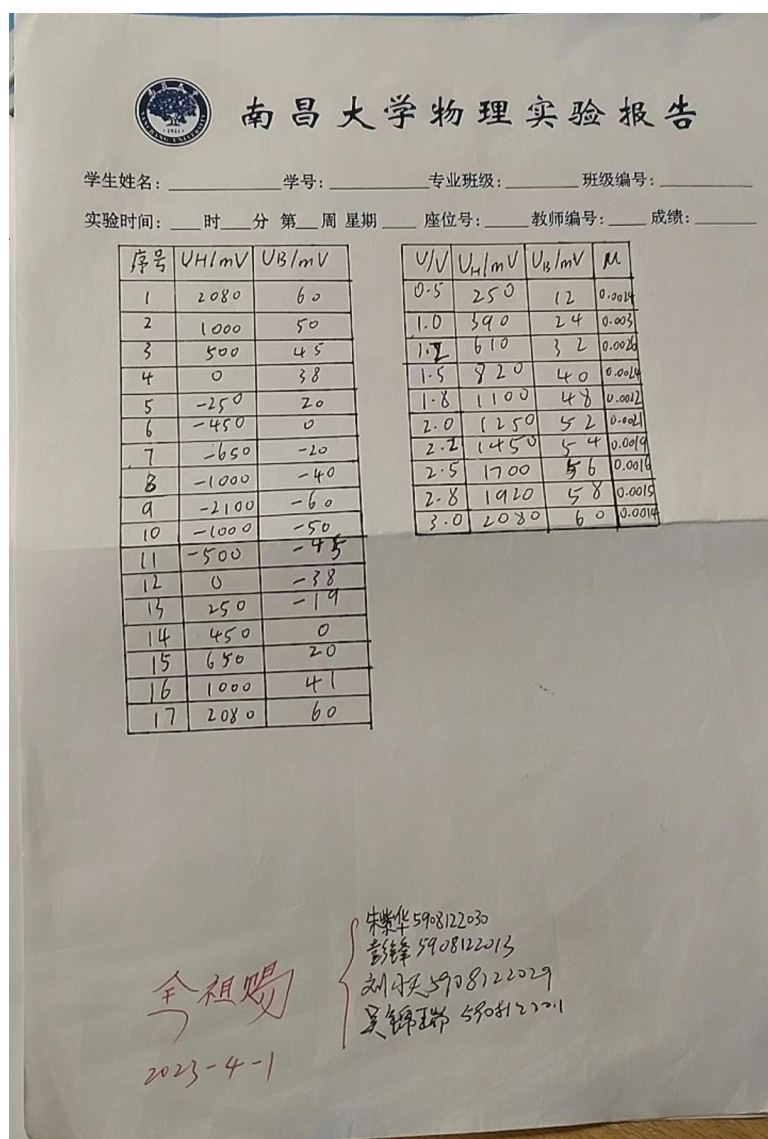 南昌大学物理实验报告
学生姓名: 学号: 专业班级: 班级编号:
实验时间: 时 分 第 周 星期 座位号: 教师编号: 成绩:
序号 UH/mV UB/mV
1 2080 60
2 1000 50
3 500 45
4 0 38
5 -250 20
6 -450 0
7 -650 -20
8 -1000 -40
9 -2100 -60
10 -1000 -50
11 -500 -45
12 0 -38
13 250 -19
14 450 0
15 650 20
16 1000 41
17 2080 60
U/V UH/mV UB/mV μ
0.5 250 12 0.0024
1.0 390 24 0.003
1.2 610 32 0.0026
1.5 820 40 0.0024
1.8 1100 48 0.0022
2.0 1250 52 0.0021
2.2 1450 54 0.0019
2.5 1700 56 0.0016
2.8 1920 58 0.0015
3.0 2080 60 0.0014
朱紫华5908122030
5908122013
5908122029
祖赐
2023-4-1